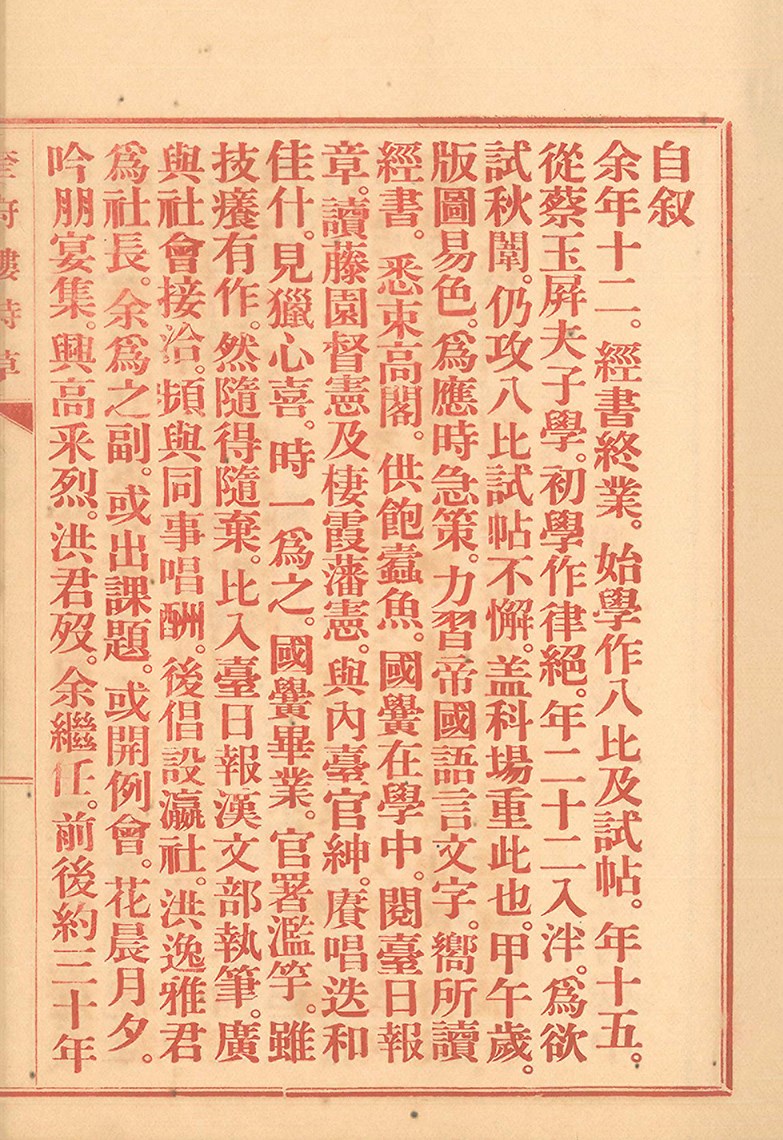 自叙
余年十二。經書終業。始學作八比及試帖。年十五。
從蔡玉屛夫子學。初學作律絕。年二十二入泮。爲欲
試秋闈。仍攻八比試帖不懈。盖科場重此也。甲午歲。
版圖易色。爲應時急策。力習帝國語言文字。嚮所讀
經書。悉束高閣。供飽蠹魚。國黌在學中。閱臺日報
章。讀藤園督憲及棲霞藩憲。與內臺官紳。賡唱迭和
佳什。見獵心喜。時一爲之。國黌畢業。官署濫竽。雖
技癢有作。然隨得隨棄。比入臺日報漢文部執筆。廣
與社會接洽。頻與同事唱酬。後倡設瀛社。洪逸雅君
爲社長。余爲之副。或出課題。或開例會。花晨月夕。
吟朋宴集。興高釆烈。洪君歿。余繼任。前後約三十年
奎府樓詩草